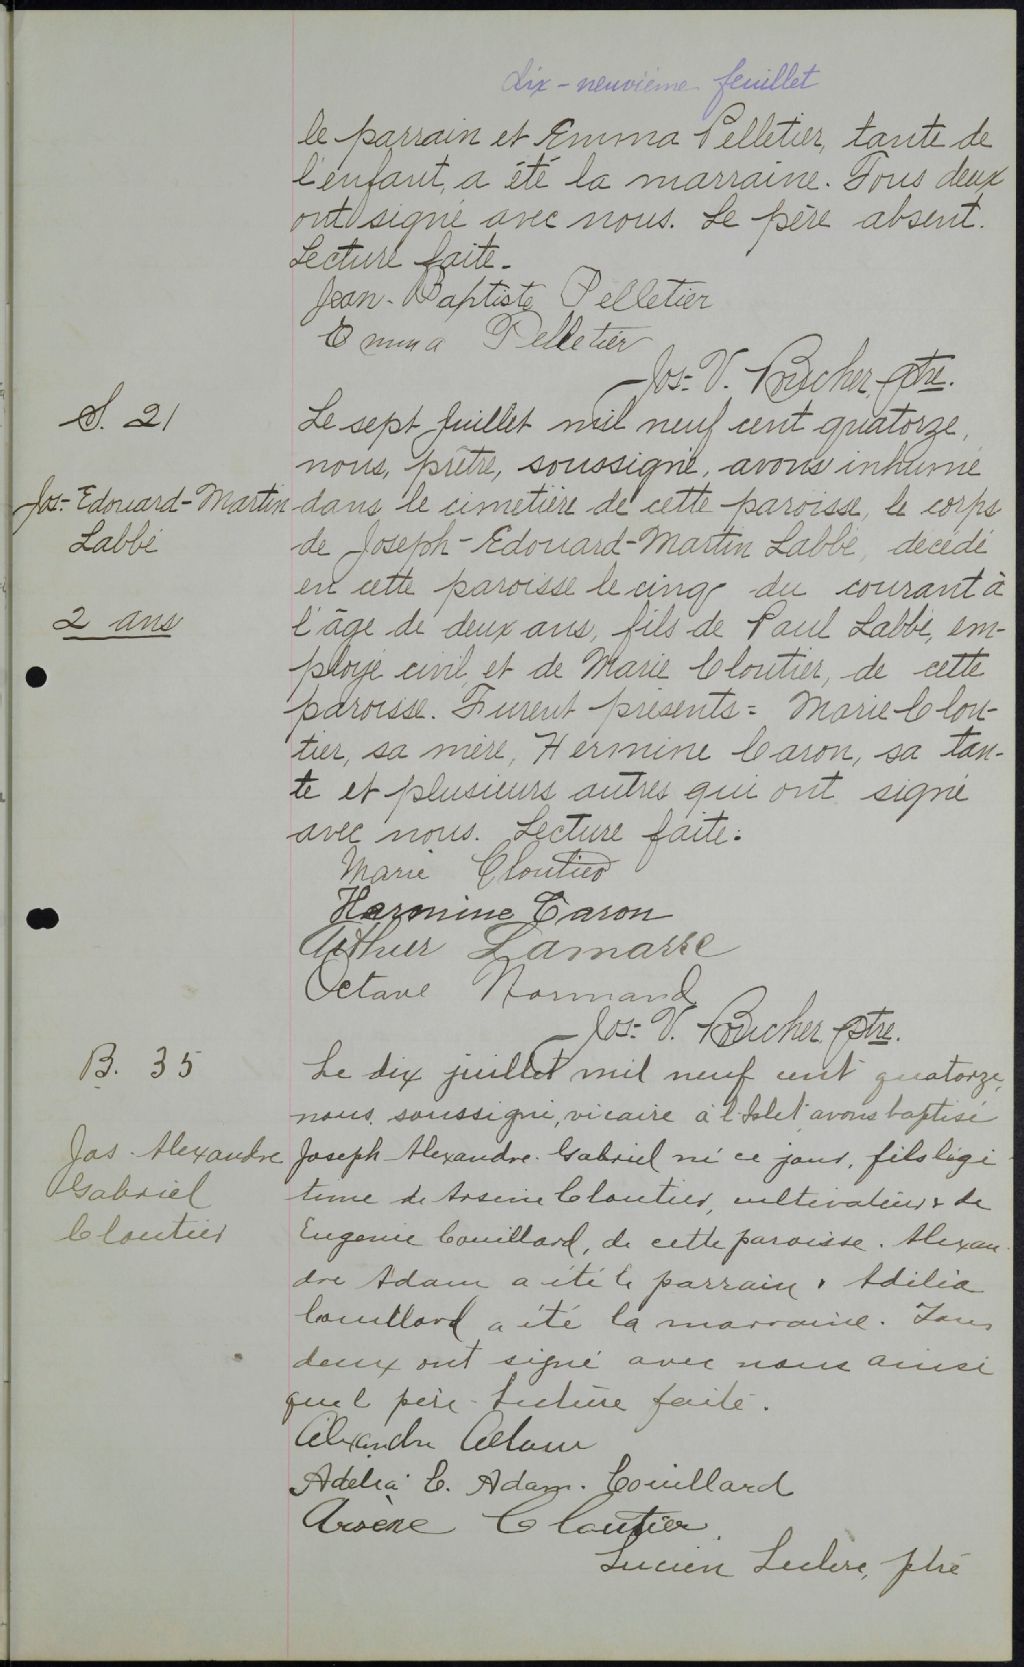 dix-neuvième feuillet
le parrain et Emma Pelletier, tante de
l'enfant, a été la marraine. Tous deux
ont signé avec nous. Le père absent.
Lecture faite.
Jean-Baptiste Pelletier
Emma Pelletier
Jos. V. Boucher, ptre.
S. 21
Jos-Edouard-Martin
Labbé
2 ans
Le sept Juillet mil neuf cent quatorze,
nous, prêtre, soussigné, avons inhumé
dans le cimetière de cette paroisse, le corps
de Joseph-Edouard-Martin Labbé, décédé
en cette paroisse le cinq du courant à
l'âge de deux ans, fils de Paul Labbé, em-
ployé civil, et de Marie Cloutier, de cette
paroisse. Furent présents = Marie Clou-
tier, sa mère, Hermine Caron, sa tan-
te et plusieurs autres qui ont signé
avec nous. Lecture faite.
Marie Cloutier
Hermine Caron
Arthur Lamarre
Octave Normand
Jos. V. Boucher, ptre.
B. 35
Jos. Alexandre
Gabriel
Cloutier
Le dix juillet mil neuf cent quatorze,
nous, soussigné, vicaire à l'Islet avons baptisé
Joseph Alexandre Gabriel né ce jour, fils légi-
time de Arsène Cloutier, cultivateur & de
Eugenie Couillard, de cette paroisse. Alexan-
dre Adam a été le parrain & Adélia
Couillard a été la marraine. Tous
deux ont signé avec nous ainsi
que l père. Lecture faite.
Alexandre Adam
Adélia C. Adam. Couillard
Arsène Cloutier
Lucien Leclerc, ptre